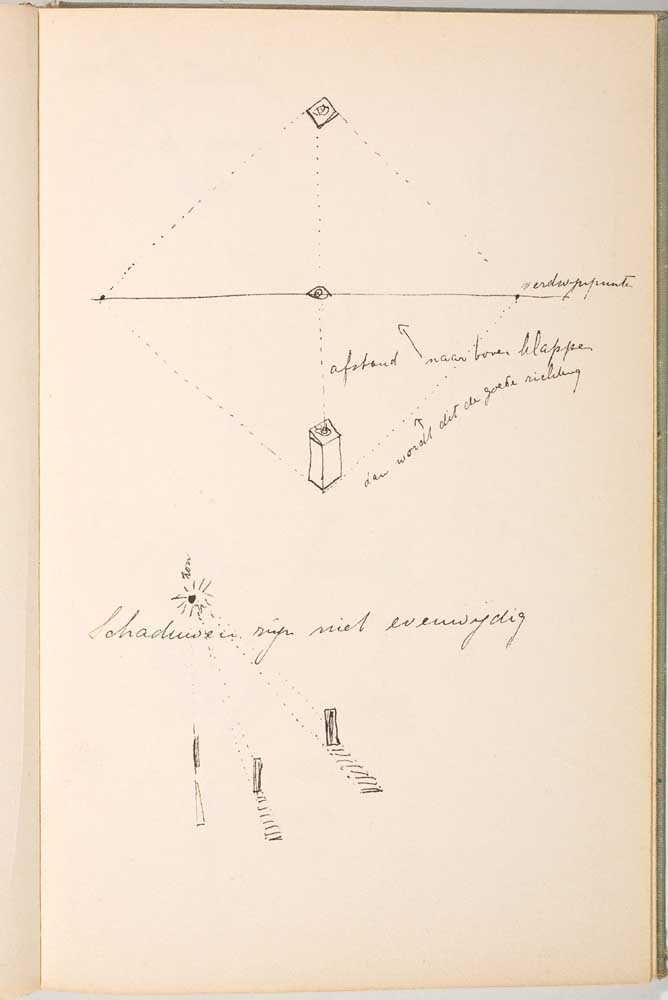 verdwijnpunt
afstand naar boven klappen
dan wordt dit de goede richting
zon
Schaduwen zijn niet evenwijdig